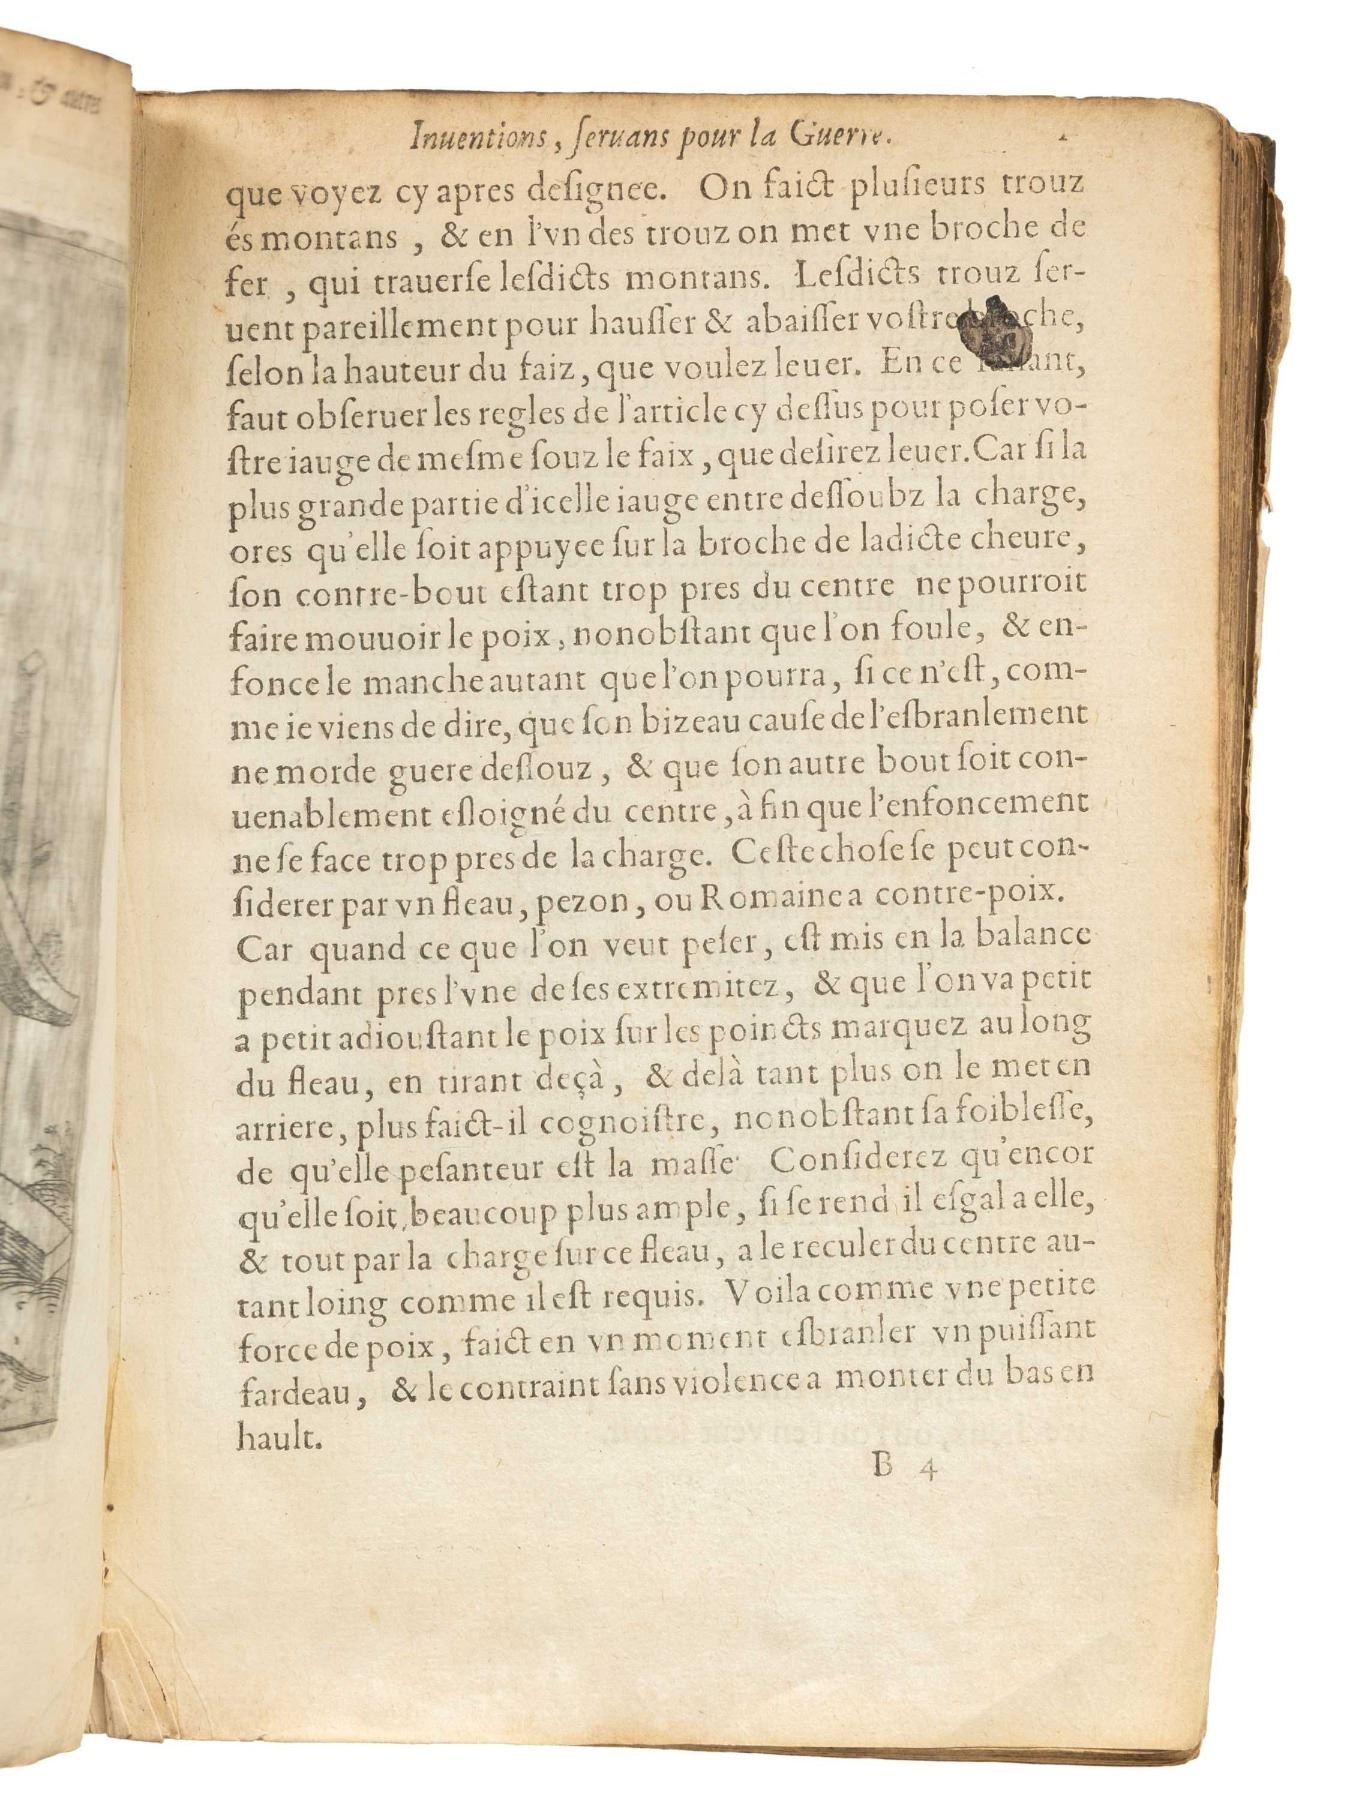 Inuentions, ſeruans pour la Guerre.
que voyez cy apres deſignee. On faict pluſieurs trouz
és montans , & en l'vn des trouz on met vne broche de
fer , qui trauerſe leſdicts montans. Leſdicts trouz ſer-
uent pareillement pour hauſſer & abaiſſer voſtre broche,
ſelon la hauteur du faiz, que voulez leuer. En ce
faut obſeruer les regles de l'article cy deſſus pour poſer vo-
ſtre iauge de meſme ſouz le faix, que deſirez leuer. Car ſi la
plus grande partie d'icelle iauge entre deſſoubz la charge,
ores qu'elle ſoit appuyee ſur la broche de ladicte cheure,
ſon contre-bout eſtant trop pres du centre ne pourroit
faire mouuoir le poix, nonobſtant que l'on foule, & en-
fonce le manche autant que l'on pourra, ſi ce n'eſt, com-
me ie viens de dire, que ſon bizeau cauſe de l'eſbranlement
ne morde guere deſſouz, & que ſon autre bout ſoit con-
uenablement eſloigné du centre, à fin que l'enfoncement
ne ſe face trop pres de la charge. Ceſte choſe ſe peut con-
ſiderer par vn fleau, pezon, ou Romaine a contre-poix.
Car quand ce que l'on veut peſer, eſt mis en la balance
pendant pres l'vne de ſes extremitez, & que l'on va petit
a petit adiouſtant le poix ſur les poincts marquez au long
du fleau, en tirant deçà, & delà tant plus on le met en
arriere, plus faict-il cognoiſtre, nonobſtant ſa foibleſſe,
de qu'elle peſanteur eſt la maſſe. Conſiderez qu'encor
qu'elle ſoit beaucoup plus ample, ſi ſe rend il eſgal a elle,
& tout par la charge ſur ce fleau, a le reculer du centre au-
tant loing comme il eſt requis. Voila comme vne petite
force de poix, faict en vn moment eſbranler vn puiſſant
fardeau, & le contraint ſans violence a monter du bas en
hault.
B 4